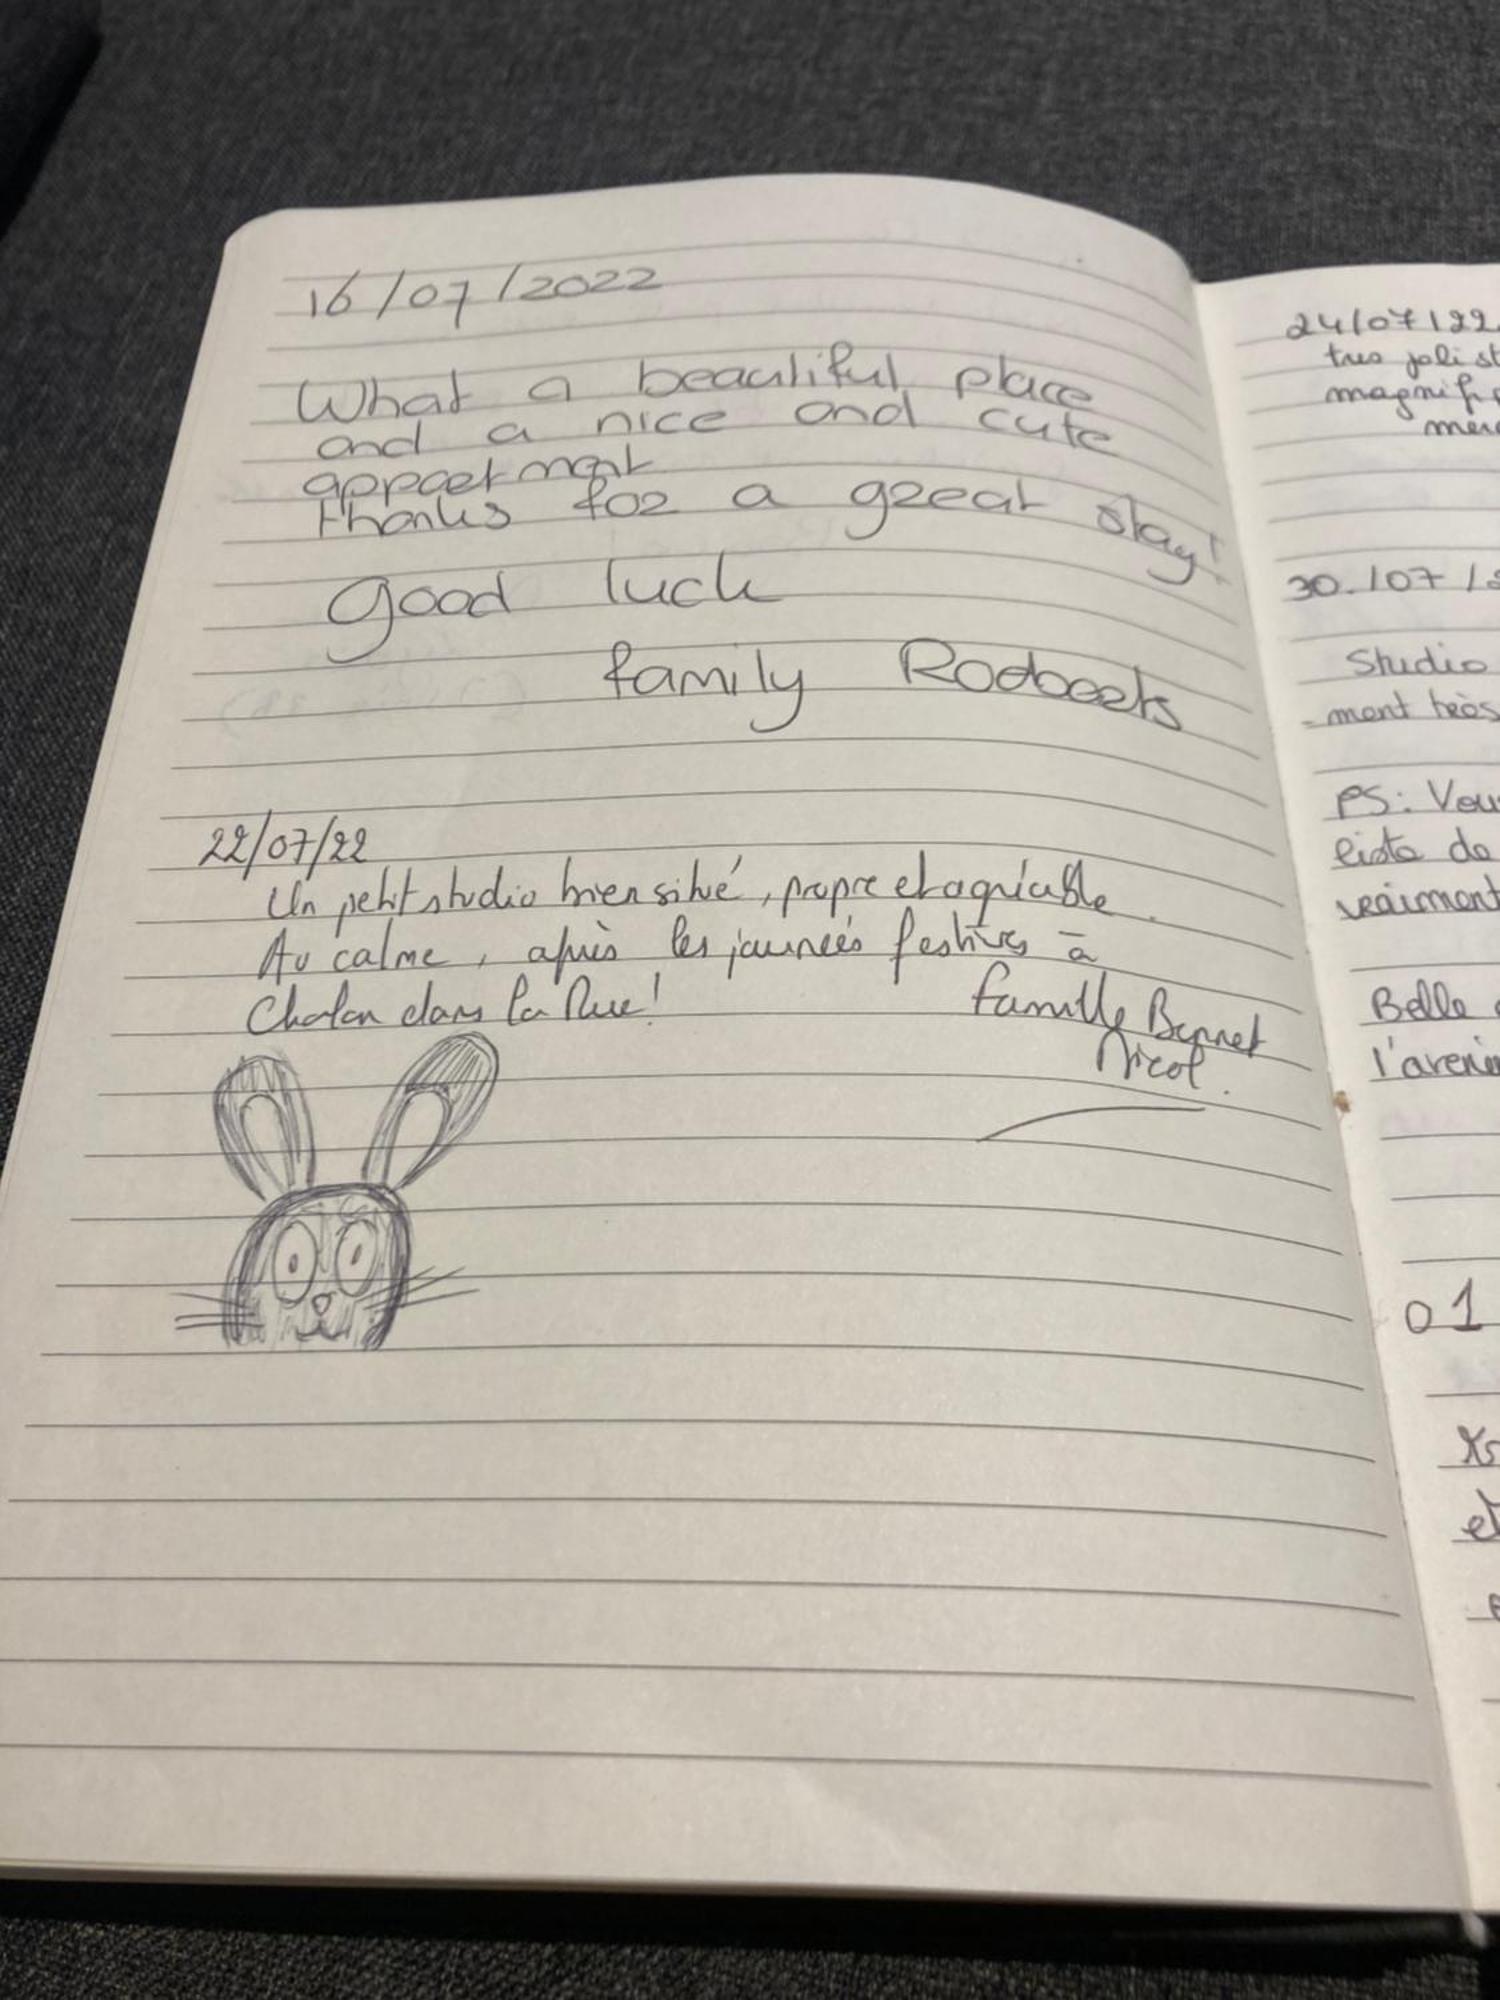 16/07/2022
What a beautiful place
and a nice and cute
appartment
thanks for a great stay!
good luck
family Rodoets
22/07/22
Un petit studio bien situé, propre et agréable.
Au calme, après les journées festives à
Chalon dans la Rue!
famille Bonnet
Nicol.
24/07/22
tres joli st
magnifi
merc
30./07/2
Studio
-ment très
PS: Vous
liste de
vraiment
Belle
l'aveni
01
et